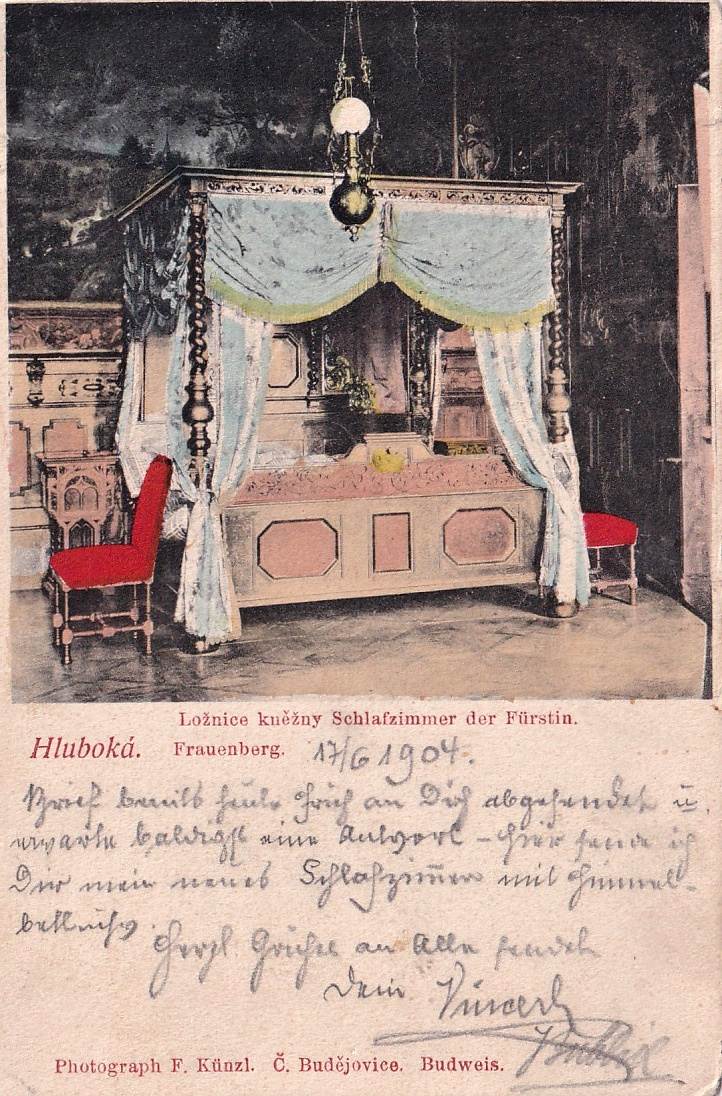 Ložnice kněžny Schlafzimmer der Fürstin.
Hluboká. Frauenberg. 17/6 1904.
Brief bereits heute früh an Dich abgesendet u.
erwarte baldigst eine Antwort – hier sende ich
Dir mein neues Schlafzimmer mit Himmel-
Herzl Grüße an Alle sendet
Dein
Photograph F. Künzl. Č. Budějovice. Budweis.